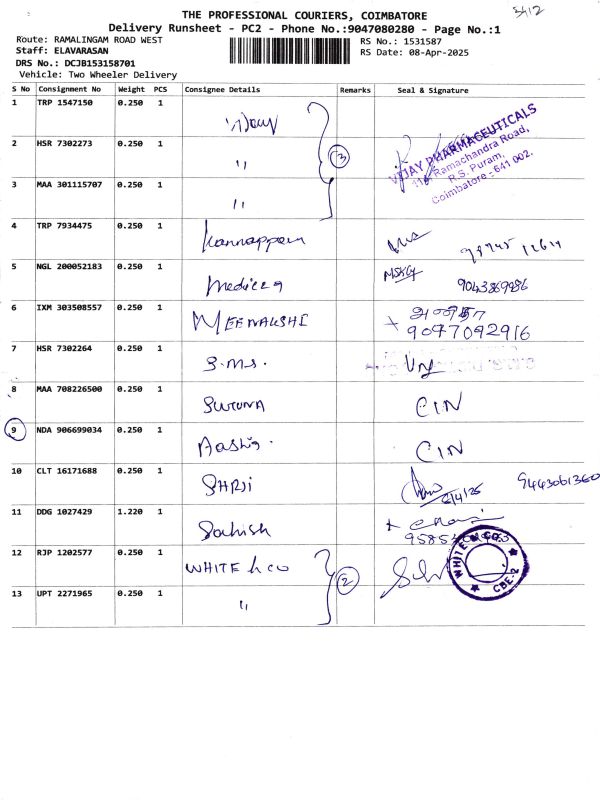 THE PROFESSIONAL COURIERS, COIMBATORE
Delivery Runsheet - PC2 - Phone No.:9047080280 - Page No.:1
Route: RAMALINGAM ROAD WEST
Staff: ELAVARASAN
DRS No.: DCJB153158701
Vehicle: Two Wheeler Delivery
RS No.: 1531587
RS Date: 08-Apr-2025
S No Consignment No Weight PCS Consignee Details Remarks Seal & Signature
1 TRP 1547150 0.250 1
2 HSR 7302273 0.250 1 " 3
VIJAY PHARMACEUTICALS
Ramachandra Road,
R.S. Puram,
Coimbatore - 641 002.
3 MAA 301115707 0.250 1 "
4 TRP 7934475 0.250 1 Kannappan
5 NGL 200052183 0.250 1 9043869986
6 IXM 303508557 0.250 1 MEENAKSHI 9097092916
7 HSR 7302264 0.250 1 S.M.S.
8 MAA 708226500 0.250 1 CIN
9 NDA 906699034 0.250 1 CIN
10 CLT 16171688 0.250 1 9443061360
11 DDG 1027429 1.220 1 Sathish
12 RJP 1202577 0.250 1 WHITE & CO 2
WHITE & CO. CBE-2
13 UPT 2271965 0.250 1 "